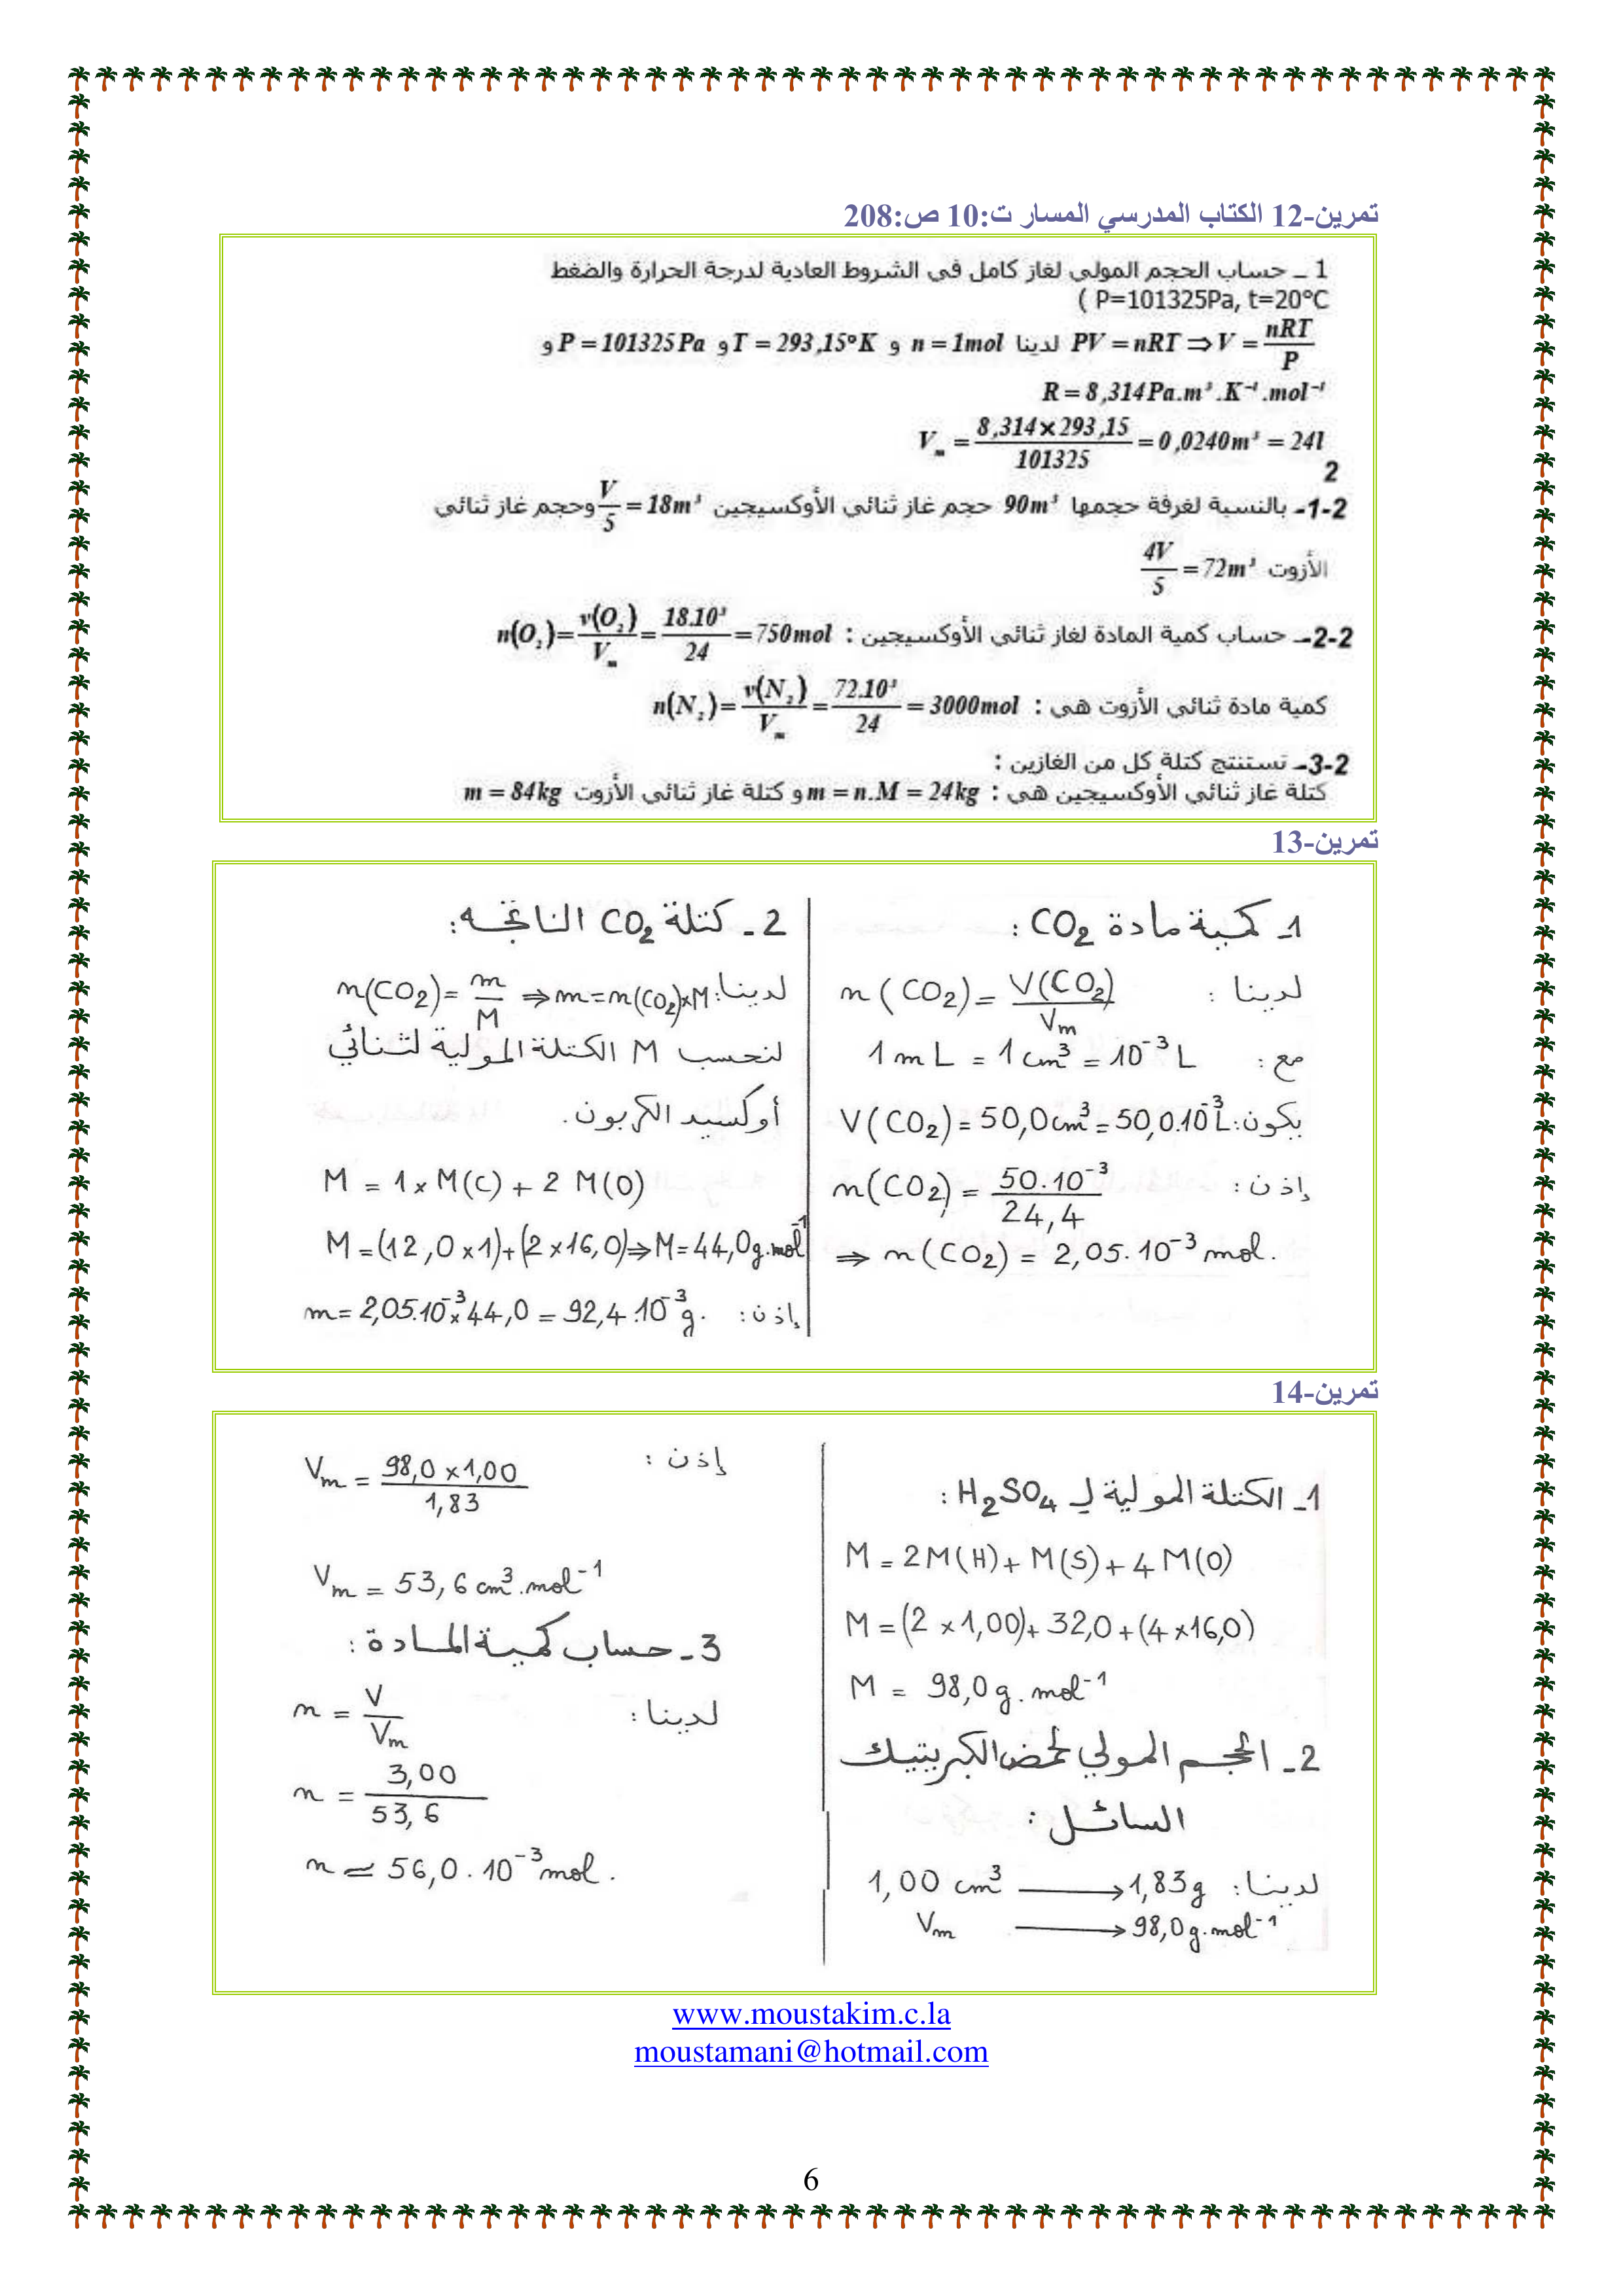 تمرين-12 الكتاب المدرسي المسار ت:10 ص:208
1 ـ حساب الحجم المولي لغاز كامل في الشروط العادية لدرجة الحرارة والضغط
( P=101325Pa, t=20°C
PV = nRT ⇒ V = nRT/P لدينا n = 1mol و T = 293,15°K و P = 101325Pa و
R = 8,314Pa.m³.K⁻¹.mol⁻¹
Vₘ = (8,314×293,15)/101325 = 0,0240m³ = 24l
2
1-2- بالنسبة لغرفة حجمها 90m³ حجم غاز ثنائي الأوكسيجين V/5 = 18m³ وحجم غاز ثنائي
الأزوت 4V/5 = 72m³
2-2ـ حساب كمية المادة لغاز ثنائي الأوكسيجين : n(O₂) = v(O₂)/Vₘ = 18.10³/24 = 750mol
كمية مادة ثنائي الأزوت هي : n(N₂) = v(N₂)/Vₘ = 72.10³/24 = 3000mol
3-2ـ تستنتج كتلة كل من الغازين :
كتلة غاز ثنائي الأوكسيجين هي : m = n.M = 24kg و كتلة غاز ثنائي الأزوت m = 84kg
تمرين-13
1ـ كمية مادة CO₂ :
لدينا : n(CO₂) = V(CO₂)/Vm
مع : 1 mL = 1 cm³ = 10⁻³ L
يكون: V(CO₂) = 50,0cm³ = 50,0.10⁻³L
إذن : n(CO₂) = 50.10⁻³/24,4
⇒ n(CO₂) = 2,05.10⁻³ mol.
2ـ كتلة CO₂ الناتجة:
لدينا: n(CO₂) = m/M ⇒ m = n(CO₂)×M
لنحسب M الكتلة المولية لثنائي
أوكسيد الكربون.
M = 1×M(C) + 2 M(O)
M = (12,0×1)+(2×16,0) ⇒ M = 44,0g.mol⁻¹
إذن: m = 2,05.10⁻³×44,0 = 92,4.10⁻³g.
تمرين-14
1ـ الكتلة المولية لـ H₂SO₄ :
M = 2M(H) + M(S) + 4 M(O)
M = (2 × 1,00) + 32,0 + (4 ×16,0)
M = 98,0g.mol⁻¹
2ـ الحجم المولي لحمض الكبريتيك
السائل :
لدينا: 1,00 cm³ → 1,83g
Vm → 98,0g.mol⁻¹
إذن : Vm = (98,0 ×1,00)/1,83
Vm = 53,6 cm³.mol⁻¹
3ـ حساب كمية المادة :
لدينا: n = V/Vm
n = 3,00/53,6
n ≃ 56,0.10⁻³mol.
www.moustakim.c.la
moustamani@hotmail.com
6